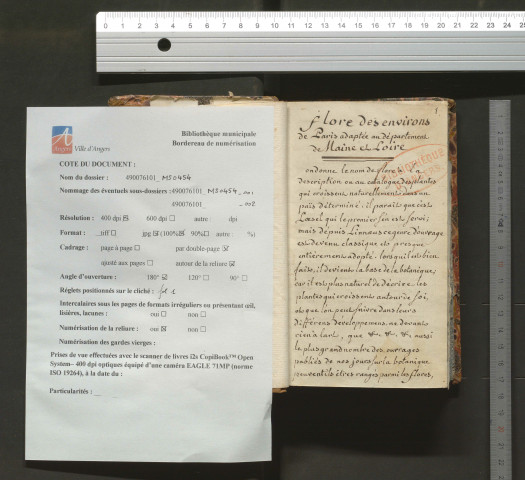 Bibliothèque municipale
Bordereau de numérisation
Angers
Ville d'Angers
COTE DU DOCUMENT :
Nom du dossier : 490076101_ MS0454
Nommage des éventuels sous-dossiers : 490076101_ MS0454_001
490076101_ _002
Résolution : 400 dpi ☒ 600 dpi ☐ autre : dpi
Format : .tiff ☐ jpg ☒ (100% ☒ 90% ☐ autre : %)
Cadrage : page à page ☐ par double-page ☒
ajusté aux pages ☐ autour de la reliure ☒
Angle d'ouverture : 180° ☒ 120° ☐ 90° ☐
Réglets positionnés sur le cliché : fol 1
Intercalaires sous les pages de formats irréguliers ou présentant œil,
lisières, lacunes : oui ☐ non ☐
Numérisation de la reliure : oui ☒ non ☐
Numérisation des gardes vierges :
Prises de vue effectuées avec le scanner de livres i2s CopiBook™ Open
System– 400 dpi optiques équipé d'une caméra EAGLE 71MP (norme
ISO 19264), à la date du :
Particularités :
1
flore des environs
de Paris adaptée au département
de Maine et Loire
on donne le nom de flore à la
description ou au catalogue des plantes
qui croissent naturellement dans un
païs déterminé : il paraît que c'est
Lœsel qui le premier s'en est servi ;
mais depuis Linneus ce genre d'ouvrage
est devenu classique et presque
entièrement adopté. lorsqu'il est bien
fait, il devient la base de la botanique ;
car il est plus naturel de décrire les
plantes qui croissent autour de soi,
et que l'on peut suivre dans leurs
différens développemens, au devant
rien à l'art, que &. &. &. aussi
le plus grand nombre des ouvrages
publiés de nos jours sur la botanique
peuvent ils être rangés parmi les flores,